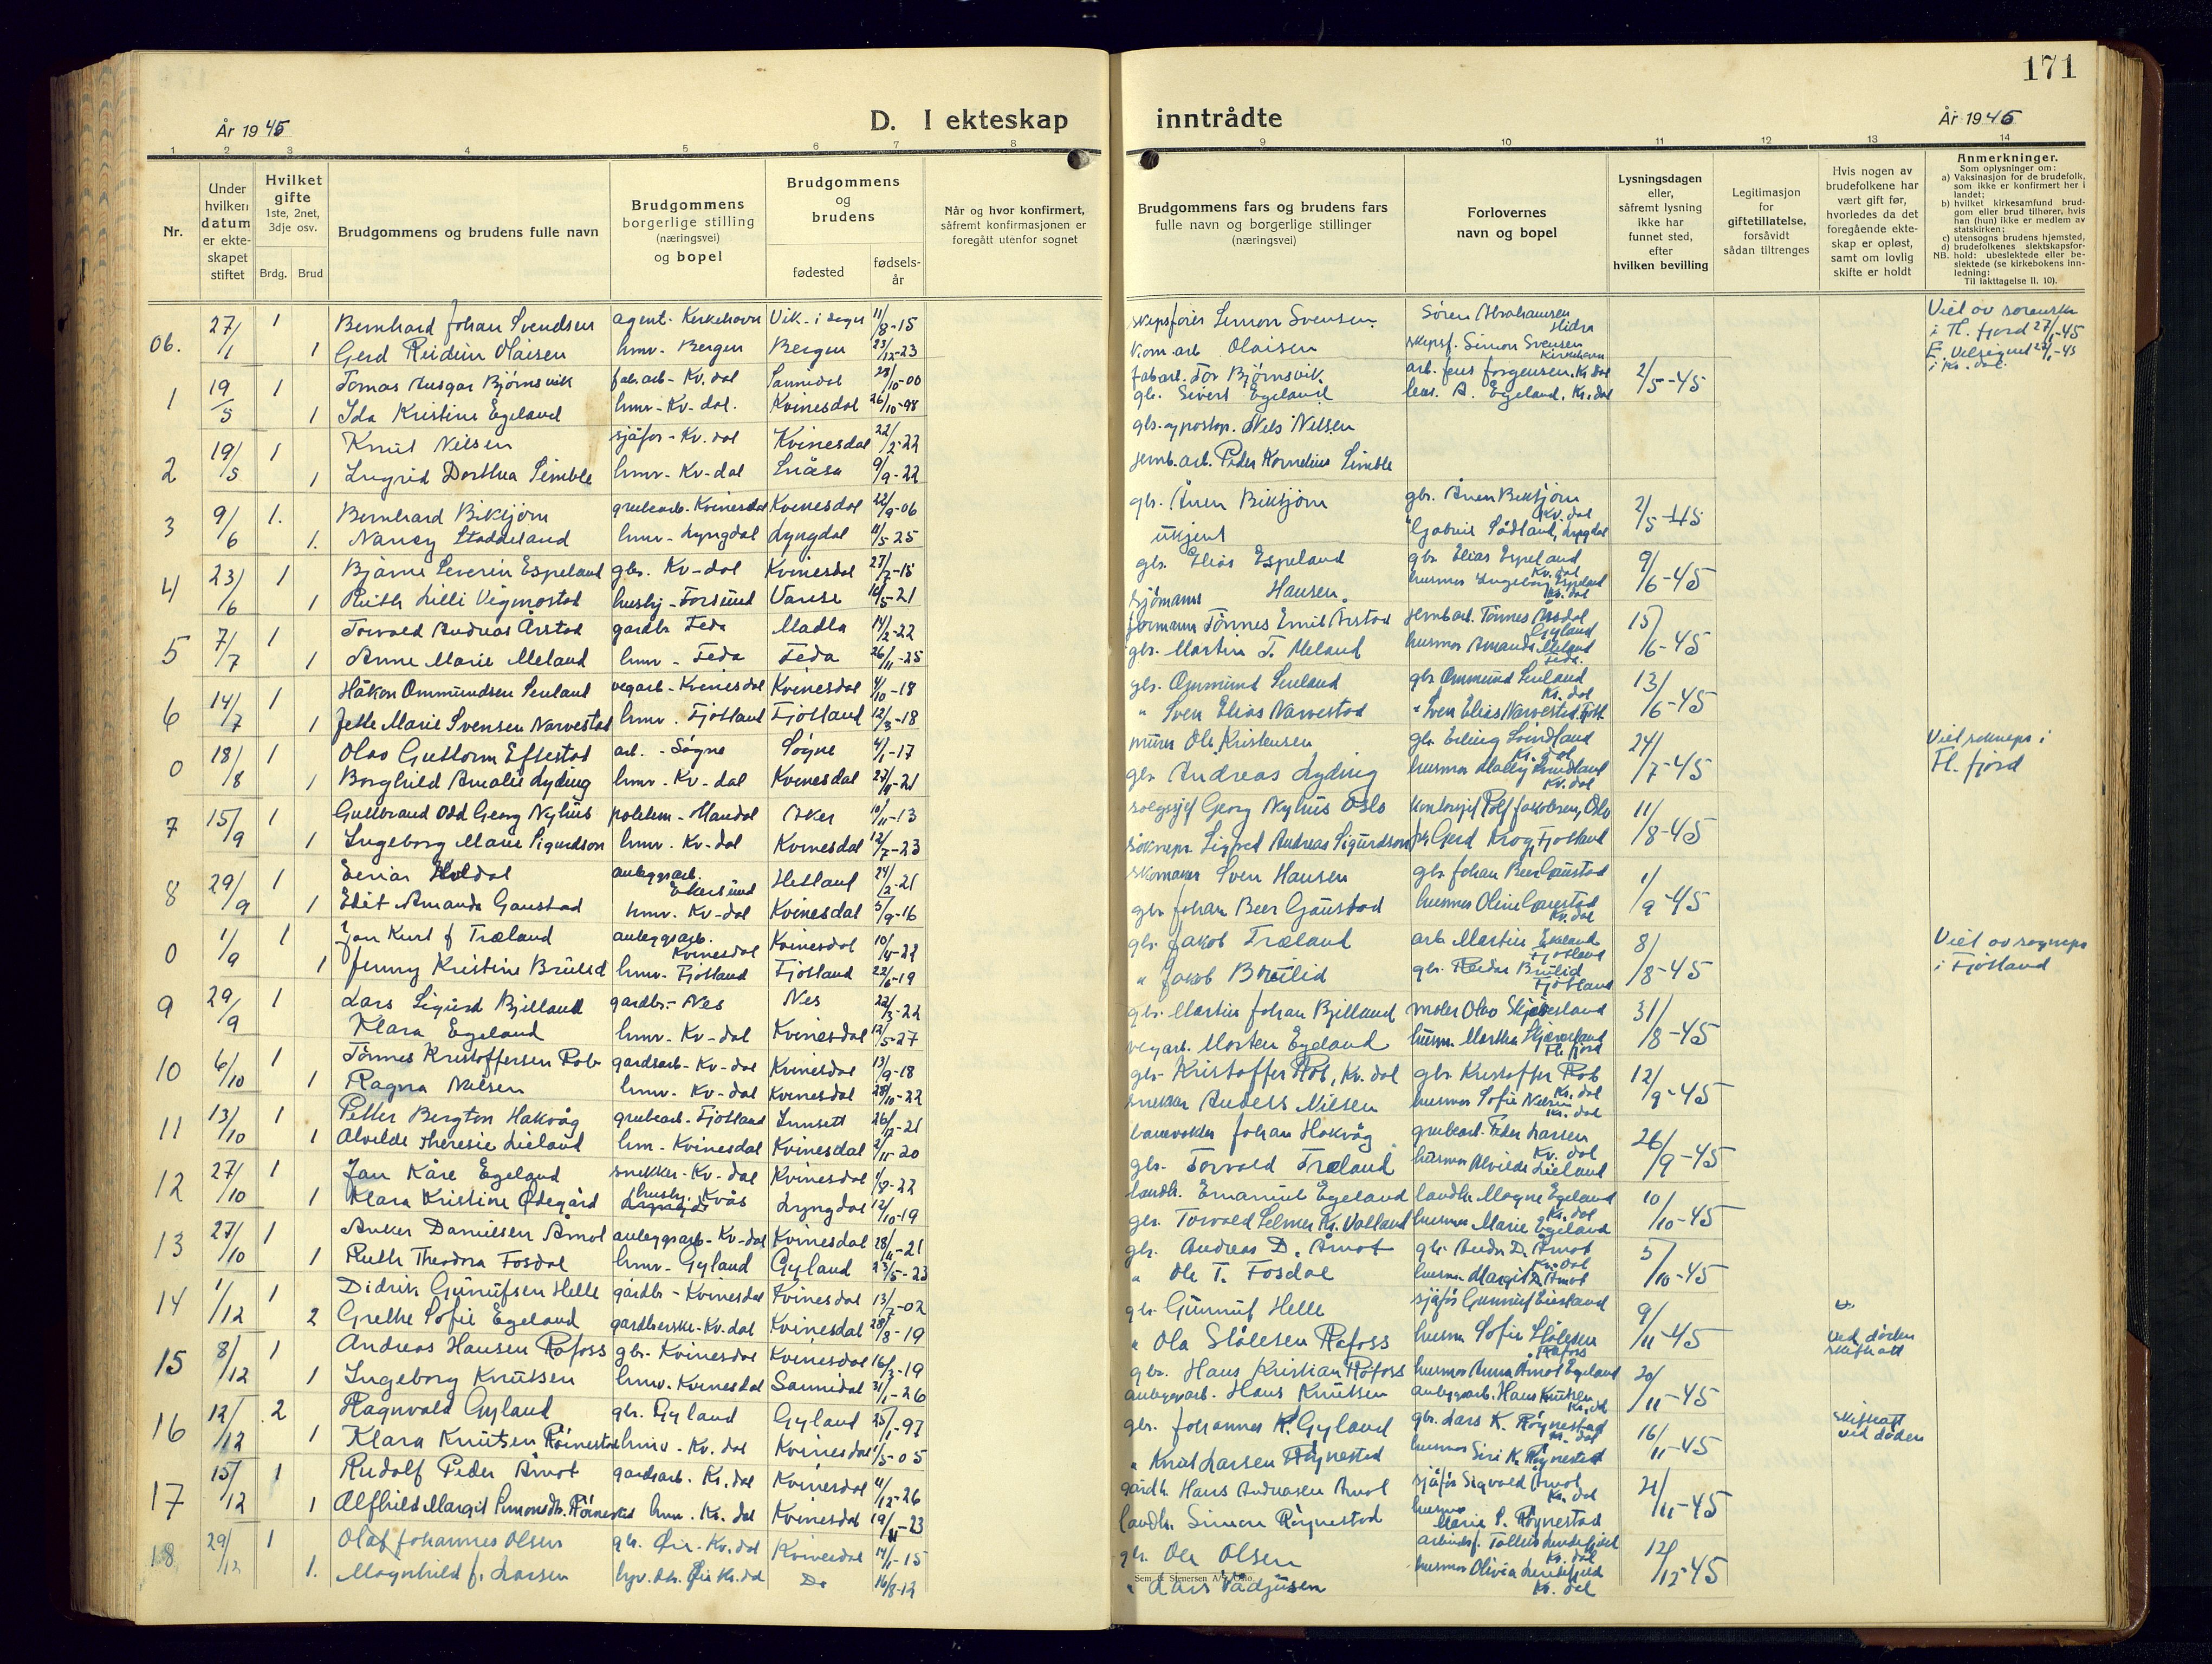 171
År 1945
D. I ekteskap inntrådte
År 1945
1 2 3 4 5 6 7 8 9 10 11 12 13 14
Nr.
Under hvilken datum er ekteskapet stiftet
Hvilket gifte
1ste, 2net, 3dje osv.
Brdg. Brud
Brudgommens og brudens fulle navn
Brudgommens borgerlige stilling (næringsvei) og bopel
Brudgommens og brudens
fødested
fødselsår
Når og hvor konfirmert, såfremt konfirmasjonen er foregått utenfor sognet
Brudgommens fars og brudens fars fulle navn og borgerlige stillinger (næringsvei)
Forlovernes navn og bopel
Lysningsdagen eller, såfremt lysning ikke har funnet sted, efter hvilken bevilling
Legitimasjon for giftetillatelse, forsåvidt sådan tiltrenges
Hvis nogen av brudefolkene har vært gift før, hvorledes da det foregående ekteskap er opløst, samt om lovlig skifte er holdt
Anmerkninger.
Som oplysninger om:
a) Vaksinasjon for de brudefolk, som ikke er konfirmert her i landet;
b) hvilket kirkesamfund brudgom eller brud tilhører, hvis han (hun) ikke er medlem av statskirken;
c) utensogns brudens hjemsted,
d) brudefolkenes slektskapsforhold: ubeslektede eller beslektede (se kirkebokens innledning:
NB.
Til iakttagelse II. 10).
06. 27/1 1 Bernhard Johan Svendsen agent - Kirkehavn Vik - i Sogn 11/8-15 skipsfører Simon Svensen Søren Abrahamsen Hidra
1 Gerd Reidun Olaisen hmv - Bergen Bergen 23/12-23 kom.arb Olaisen skipsf. Simon Svensen Kirkehavn
1 19/5 1 Tomas Ansgar Bjørnsvik fab.arb - Kv.dal Sannidal 28/10-00 fabarb. Tor Bjørnsvik arb. Jens Jørgensen, Kv.dal 2/5-45
1 Ida Kristine Egeland hmv - Kv-dal. Kvinesdal 26/10-98 gb. Sivert Egeland A. Egeland, Kv.dal
2 19/5 1 Knut Nilsen sjåfør - Kv.dal Kvinesdal 22/2-22 Nils Nilsen
1 Ingrid Dorthea Simble hmv - Kv-dal Snåsa 9/9-22 jernb.arb. Peder Kornelius Simble
3 9/6 1. Bernhard Biktjørn grubearb - Kvinesdal Kvinesdal 22/9-06 gb. Ånen Biktjørn gb. Ånen Biktjørn Kv.dal 2/5-45
1. Nancy Stoddeland hmv - Lyngdal Lyngdal 11/5-25 ukjent Gabriel Sådland, Lyngdal
4 23/6 1 Bjarne Severin Espeland gb. Kv-dal Kvinesdal 27/7-15 gb. Elias Espeland gb. Elias Espeland Kv.dal 9/6-45
1 Ruth Lilli Vigmostad hushj - Farsund Vanse 16/5-21 sjømann Hansen husmor Ingeborg Espeland Kv.dal
5 7/7 1 Torvald Andreas Årstad gardbr Feda Madla 14/2-22 formann Tønnes Emil Årstad jernbarb. Tønnes Årstad Gyland 15/6-45
1 Anne Marie Meland hmv - Feda Feda 26/11-25 gb. Martin T. Meland husmor Amanda Meland Feda.
6 14/7 1 Håkon Ommundsen Senland vegarb - Kvinesdal Kvinesdal 4/10-18 gb. Ommund Senland gb Ommund Senland Kv.dal 13/6-45
1 Jelle Marie Svensen Narvestad hmv - Fjotland Fjotland 12/3-18 " Sven Elias Narvestad " Sven Elias Narvestad Fjotl.
0 18/8 1 Olav Guttorm Eftestad arb. - Søgne Søgne 4/1-17 murer Ole Kristensen gb. Erling Svindland Kv.dal 24/7-45
1 Borghild Amalie Lyding hmv - Kv-dal Kvinesdal gb Andreas Lyding husmor Svindland Kv.dal
Viet sokneprs i Fl. fjord
7 15/9 1 Gulbrand Odd Georg Nyhus politim - Mandal Asker 10/11-13 salgssjef Georg Nyhus Oslo kontorsjef Rolf Jakobsen, Oslo 11/8-45
1 Ingeborg Marie Sigurdson hmv. Kv-dal Kvinesdal 12/7-23 sokneprs Sigurd Andreas Sigurdson Gerd Krog, Fjotland
8 29/9 1 Einar Heldal anleggsarb. Ekersund Hetland 24/2-21 skomaker Sven Hansen gb Johan Beer Gaustad 1/9-45
1 Edit Amanda Gaustad hmv. Kv-dal Kvinesdal 5/9-16 gb Johan Beer Gaustad husmor Oline Gaustad Kv.dal
0 1/9 1 Jan Kurt J Træland anleggsarb. Kvinesdal Kvinesdal gb. Jakob Træland arb Martin Fjotland 8/8-45
1 Jenny Kristine Brulid hmv - Fjotland Fjotland 22/6-19 " Jakob Brulid gb. Reidar Brulid Fjotland
Viet av sogneprs i Fjotland
9 29/9 1 Lars Sigurd Bjelland gardbr - Nes Nes 22/3-22 gb. Martin Johan Bjelland maler Olav Skjæveland 31/8-45
Klara Egeland hmv - Kv-dal Kvinesdal 12/5-27 vegarb. Morten Egeland husm. Martha Skjæveland Fl. fjord
10 6/10 1 Tønnes Kristoffersen Rob gardsarb - Kv-dal Kvinesdal 13/9-18 gb. Kristoffer Rob, Kv.dal gb. Kristoffer Rob Kv.dal 12/9-45
1 Ragna Nilsen hmv. Kv-dal Kvinesdal 28/10-22 snekker Anders Nilsen husmor Sofie Nilsen Kv.dal
11 13/10 1 Petter Bergton Hakvåg grubearb - Fjotland Innsett banevokter Johan Hakvåg grubearb. Peder Larsen Kv.dal 26/9-45
1 Alvilde Theresie Lieland hm - Kvinesdal Kvinesdal 2/11-20 gb. Torvald Træland husmor Alvilde Lieland
12 27/10 1 Jan Kåre Egeland snekker - Kv-dal Kvinesdal 1/8-22 landh. Emanuel Egeland landh Magne Egeland Kv.dal 10/10-45
1 Klara Kristine Ødegård hushj. Kvås Lyngdal 12/10-19 gb. Torvald Selmer Kr. Valland husmor Marie Egeland
13 27/10 1 Anker Danielsen Åmot anleggsarb - Kv-dal Kvinesdal gb. Andreas D. Åmot gb. Andr D. Åmot Kv.dal 5/10-45
1 Ruth Theodora Fosdal hmv - Gyland Gyland 23/5-23 " Ole T. Fosdal husm. Margit Åmot
14 1/12 1 Didrik Gunnufsen Helle gårdbr - Kvinesdal Kvinesdal 13/7-02 gb. Gunnuf Helle sjåfør Gunnuf 9/11-45
2 Grethe Sofie Egeland gardbrerske - Kv.dal Kvinesdal 28/8-19 " Ola Stålesen Rafoss husm Sofie Stålesen Rafoss
ved døden
15 8/12 1 Andreas Hansen Rafoss gb. Kvinesdal Kvinesdal 16/3-19 gb. Hans Kristian Rafoss husmor Anna Egeland 20/11-45
1 Ingeborg Knutsen hmv. Kvinesdal Sannidal 31/1-26 anleggsarb. Hans Knutsen anleggsarb. Hans Knutsen Kv.dal
16 12/12 2 Ragnvald Gyland gb. Gyland Gyland 25/1-97 gb. Johannes K. Gyland gb. Lars K. Røynestad Kv.dal 16/11-45
1 Klara Knutsen Røinestad hmv - Kv.dal Kvinesdal 1/5-05 " Knut Larsen Røynestad husmor Siri K. Røynestad
skifteatt ved døden
17 15/12 1 Rudolf Peder Åmot gardsarb - Kv.dal Kvinesdal 11/12-26 gardb Hans Andreasen Åmot sjåfør Sigvald Åmot Kv.dal 21/11-45
1 Alfhild Margit Simonsdt. Røinestad hmv. Kv.dal Kvinesdal landh. Simon Røynestad husmor Marie S. Røynestad
18 29/12 1 Olaf Johannes Olsen gb. Øie - Kv.dal Kvinesdal 14/1-15 gb. Ole Olsen Kv.dal 12/12-45
1. Magnhild J. Larsen Øie Kv.dal Do 16/8-12 " Lars husmor Olivia Kv.dal
Sem & Stenersen A/S, Oslo